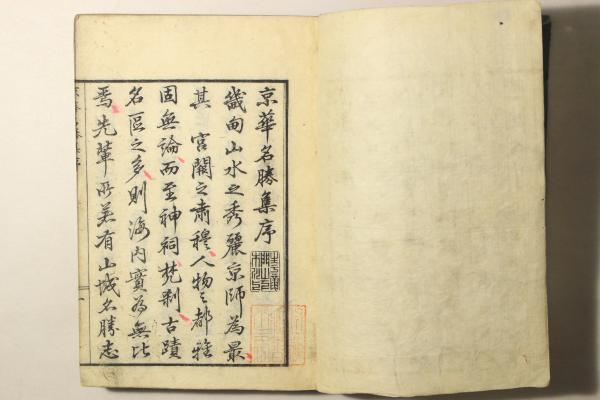 京華名勝集序
畿甸山水之秀麗京師為最
其宮闕之肅穆人物之都雅
固無論而至神祠梵刹古蹟
名區之多則海内實為無比
焉先輩所著有山城名勝志